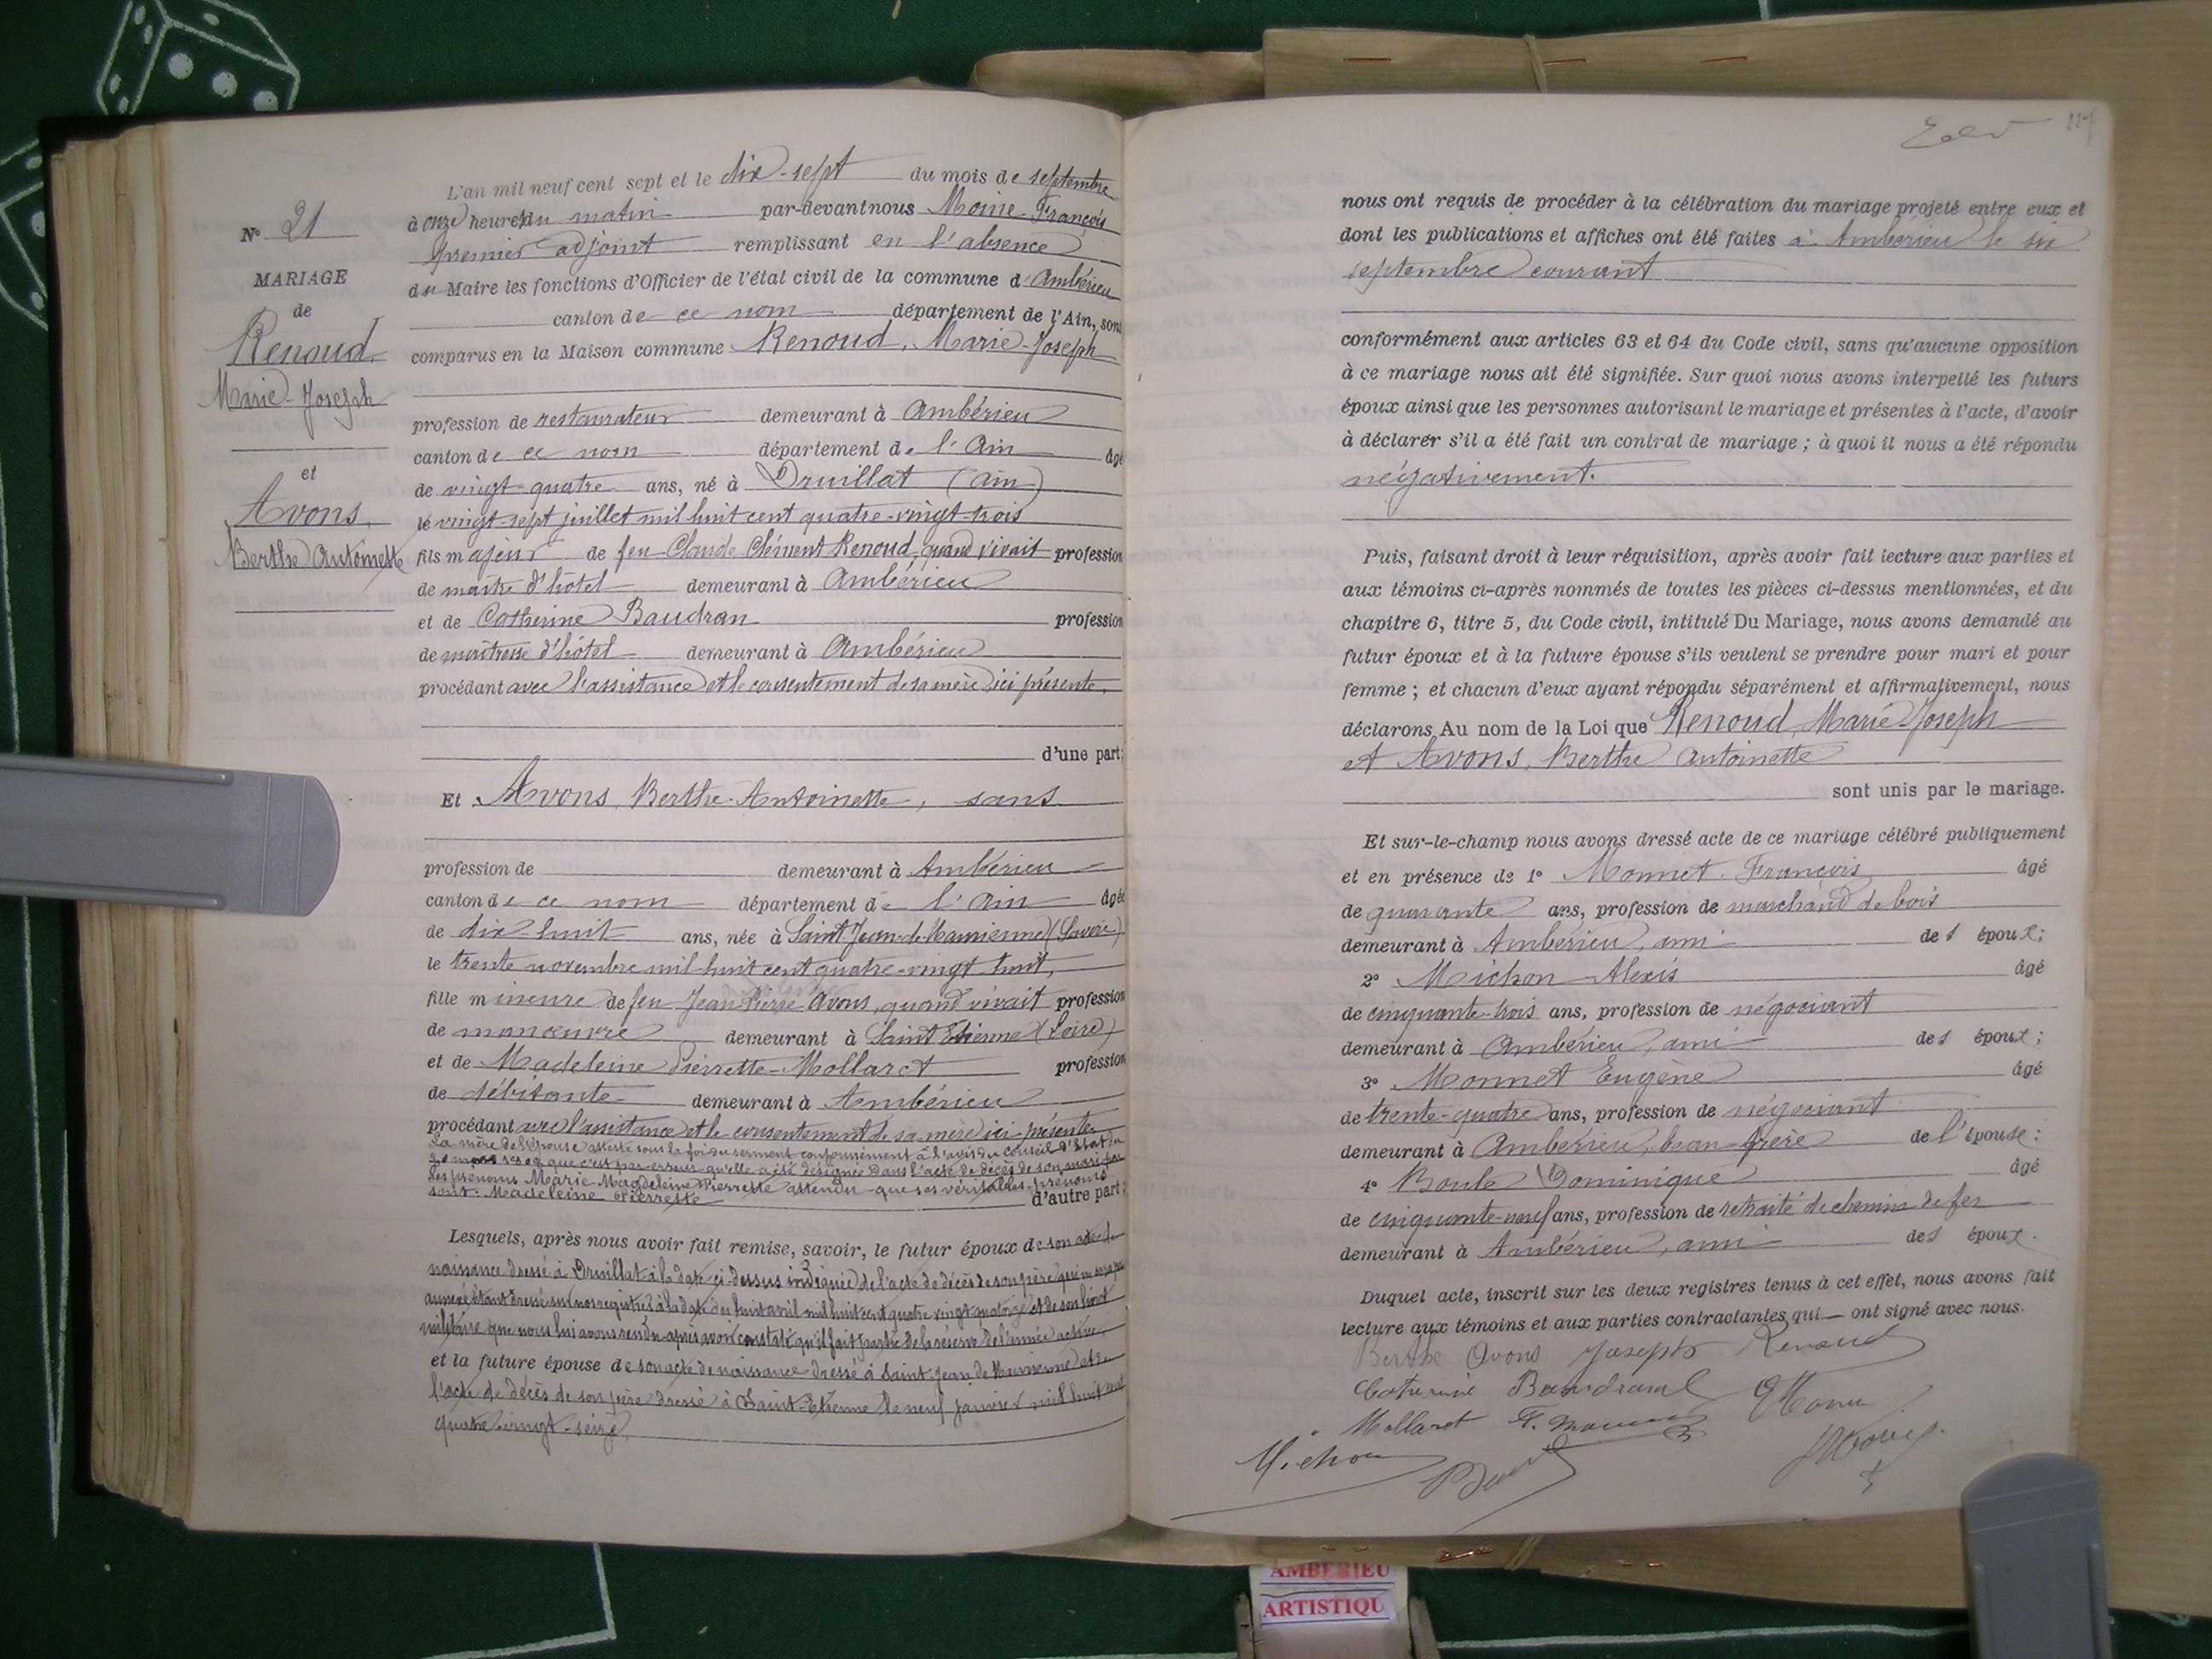 N° 21
MARIAGE
de
Renoud,
Marie-Joseph
et
Avons,
Berthe Antoinette
L'an mil neuf cent sept et le dix-sept du mois de septembre
à onze heures du matin par-devant nous Moine François
premier adjoint remplissant en l'absence
du Maire les fonctions d'Officier de l'état civil de la commune d'Ambérieu
canton de ce nom département de l'Ain, sont
comparus en la Maison commune Renoud, Marie-Joseph
profession de restaurateur demeurant à Ambérieu
canton de ce nom département de l'Ain âgé
de vingt-quatre ans, né à Druillat (Ain)
le vingt-sept juillet mil huit cent quatre-vingt-trois
fils majeur de feu Claude Clément Renoud, quand vivait profession
de maître d'hôtel demeurant à Ambérieu
et de Catherine Baudran profession
de maîtresse d'hôtel demeurant à Ambérieu
procédant avec l'assistance et le consentement de sa mère ici présente,
d'une part;
Et Avons, Berthe-Antoinette, sans
profession de demeurant à Ambérieu
canton de ce nom département de l'Ain âgée
de dix-huit ans, née à Saint Jean-de-Maurienne (Savoie)
le trente novembre mil huit cent quatre-vingt huit,
fille mineure de feu Jean-Pierre Avons, quand vivait profession
de manœuvre demeurant à Saint Etienne (Loire)
et de Madeleine Pierrette Mollaret profession
de débitante demeurant à Ambérieu
procédant avec l'assistance et le consentement de sa mère ici présente
La mère de l'épouse atteste sous la foi du serment conformément à l'avis du conseil d'Etat du
que c'est par erreur qu'elle a été désignée dans l'acte de décès de son mari par
les prénoms Marie Magdeleine Pierrette attendu que ses véritables prénoms
sont: Madeleine Pierrette d'autre part;
Lesquels, après nous avoir fait remise, savoir, le futur époux de son acte de
naissance dressé à Druillat à la date ci-dessus indiquée, de l'acte de décès de son père qui ne sera pas
annexé étant dressé sur nos registres à la date du huit avril mil huit cent quatre-vingt quatorze et de son livret
militaire que nous lui avons rendu après avoir constaté qu'il fait partie de la réserve de l'armée active,
et la future épouse de son acte de naissance dressé à Saint-Jean de Maurienne et de
l'acte de décès de son père dressé à Saint-Etienne le neuf janvier mil huit cent
quatre-vingt-seize,
nous ont requis de procéder à la célébration du mariage projeté entre eux et
dont les publications et affiches ont été faites à Ambérieu le six
septembre courant
conformément aux articles 63 et 64 du Code civil, sans qu'aucune opposition
à ce mariage nous ait été signifiée. Sur quoi nous avons interpellé les futurs
époux ainsi que les personnes autorisant le mariage et présentes à l'acte, d'avoir
à déclarer s'il a été fait un contrat de mariage ; à quoi il nous a été répondu
négativement.
Puis, faisant droit à leur réquisition, après avoir fait lecture aux parties et
aux témoins ci-après nommés de toutes les pièces ci-dessus mentionnées, et du
chapitre 6, titre 5, du Code civil, intitulé Du Mariage, nous avons demandé au
futur époux et à la future épouse s'ils veulent se prendre pour mari et pour
femme ; et chacun d'eux ayant répondu séparément et affirmativement, nous
déclarons Au nom de la Loi que Renoud, Marie Joseph
et Avons, Berthe Antoinette
sont unis par le mariage.
Et sur-le-champ nous avons dressé acte de ce mariage célébré publiquement
et en présence de 1° Monnet François âgé
de quarante ans, profession de marchand de bois
demeurant à Ambérieu, ami des époux;
2° Michon Alexis âgé
de cinquante-trois ans, profession de négociant
demeurant à Ambérieu, ami des époux;
3° Monnet Eugène âgé
de trente-quatre ans, profession de négociant
demeurant à Ambérieu, beau-frère de l'épouse;
4° Boule Dominique âgé
de cinquante-neuf ans, profession de retraité de chemin de fer
demeurant à Ambérieu, ami des époux.
Duquel acte, inscrit sur les deux registres tenus à cet effet, nous avons fait
lecture aux témoins et aux parties contractantes qui ont signé avec nous.
Berthe Avons Joseph Renoud
Catherine Baudrand
Mollaret
Michon
AMBERIEU
ARTISTIQU